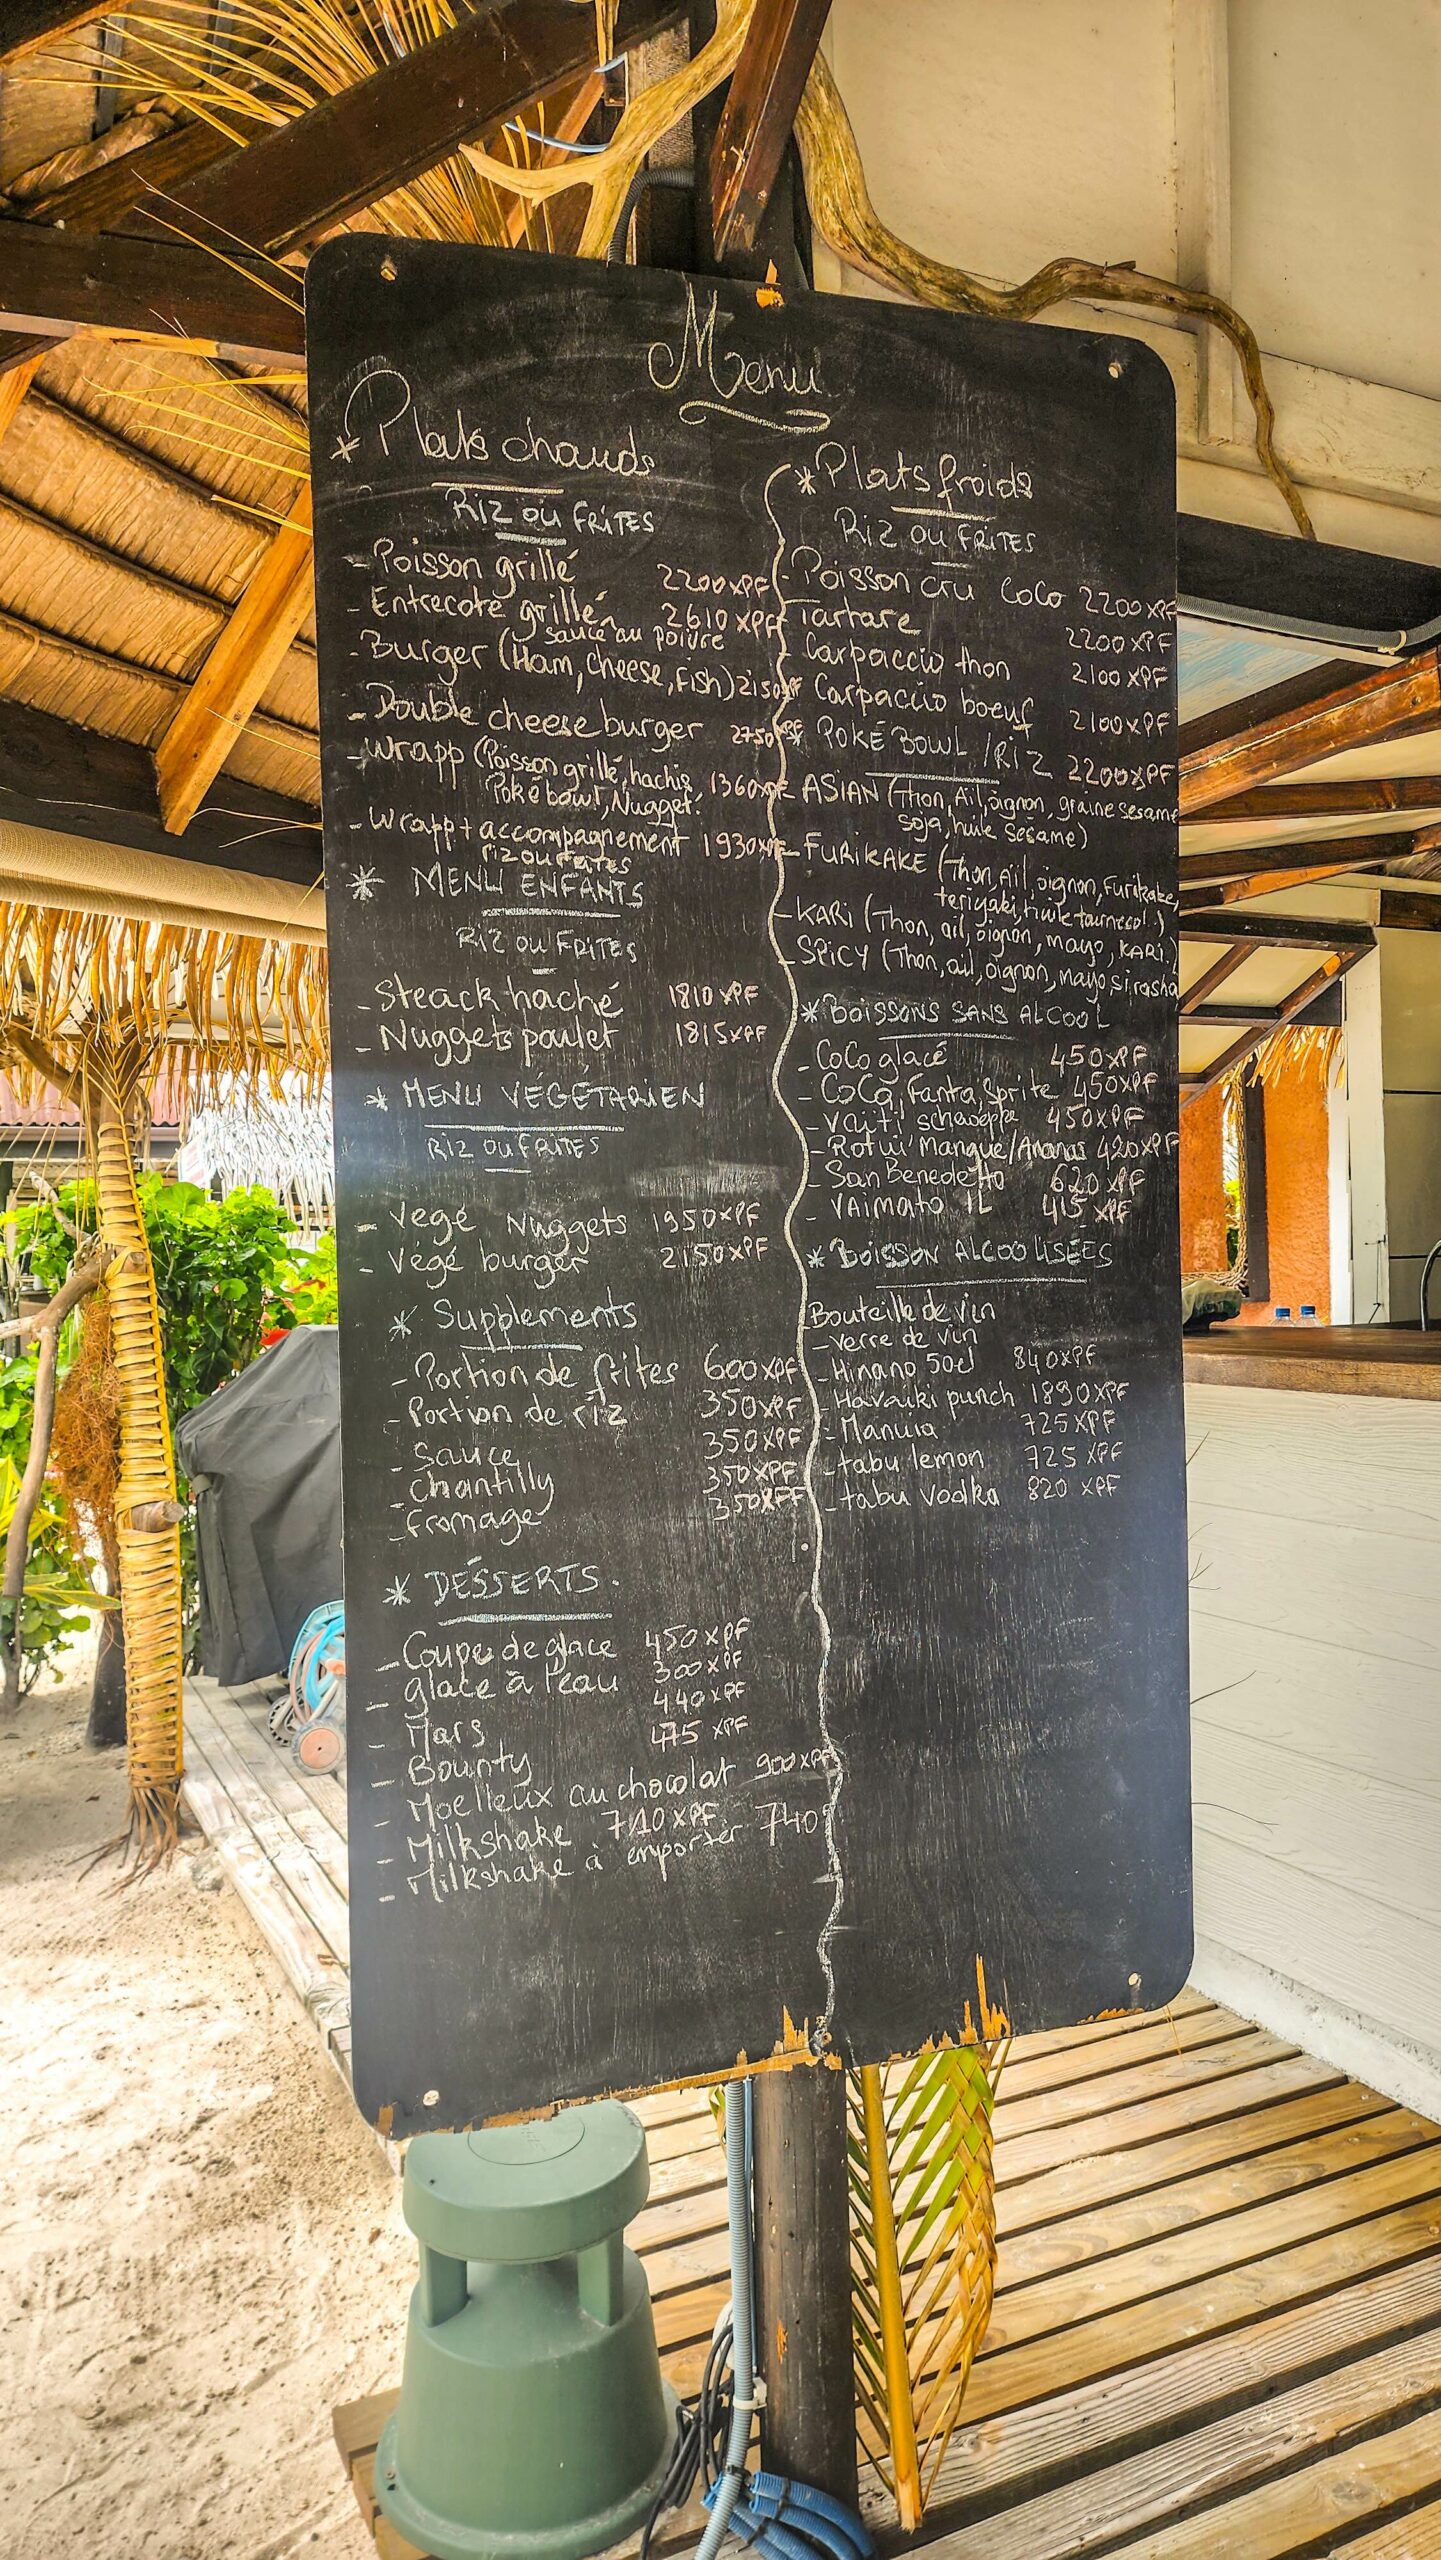 Menu
* Plats chauds
RIZ OU FRITES
- Poisson grillé 2200XPF
- Entrecote grillé 2610 XPF
sauce au poivre
- Burger (Ham, cheese, fish) 2150XPF
- Double cheese burger 2750XPF
- Wrapp (Poisson grillé, hachis, 1360XPF
Poké bowl, Nugget.
- Wrapp + accompagnement 1930XPF
riz ou frites
* MENU ENFANTS
RIZ OU FRITES
- Steack haché 1810 XPF
- Nuggets poulet 1815XPF
* MENU VÉGÉTARIEN
RIZ OU FRITES
- Végé Nuggets 1950XPF
- Végé burger 2150XPF
* Supplements
- Portion de frites 600XPF
- Portion de riz 350XPF
- Sauce 350XPF
- Chantilly 350XPF
- fromage 350XPF
* DÉSSERTS.
- Coupe de glace 450XPF
- glace à l'eau 300XPF
- Mars 440XPF
- Bounty 475 XPF
- Moelleux au chocolat 900XPF
- Milkshake 710XPF
- Milkshake à emporter 740
* Plats froids
RIZ OU FRITES
- Poisson cru coco 2200XPF
- Tartare 2200XPF
- Carpaccio thon 2100XPF
- Carpaccio boeuf 2100XPF
* POKÉ BOWL / RIZ 2200XPF
- ASIAN (Thon, Ail, oignon, graine sesame
soja, huile sesame)
- FURIKAKE (Thon, Ail, oignon, Furikake,
teriyaki, huile tournesol.)
- KARI (Thon, ail, oignon, mayo, KARI.)
- SPICY (Thon, ail, oignon, mayo, sirasha
* BOISSONS SANS ALCOOL
- CoCo glacé 450XPF
- CoCa, Fanta, Sprite 450XPF
- Vaiti schweppe 450XPF
- Rotui Mangue/Ananas 420XPF
- San Benedetto 620 XPF
- VAIMATO 1L 415 XPF
* BOISSON ALCOOLISÉES
Bouteille de vin
- verre de vin
- Hinano 50cl 840XPF
- Havaiki punch 1890XPF
- Manuia 725XPF
- tabu lemon 725 XPF
- tabu vodka 820 XPF